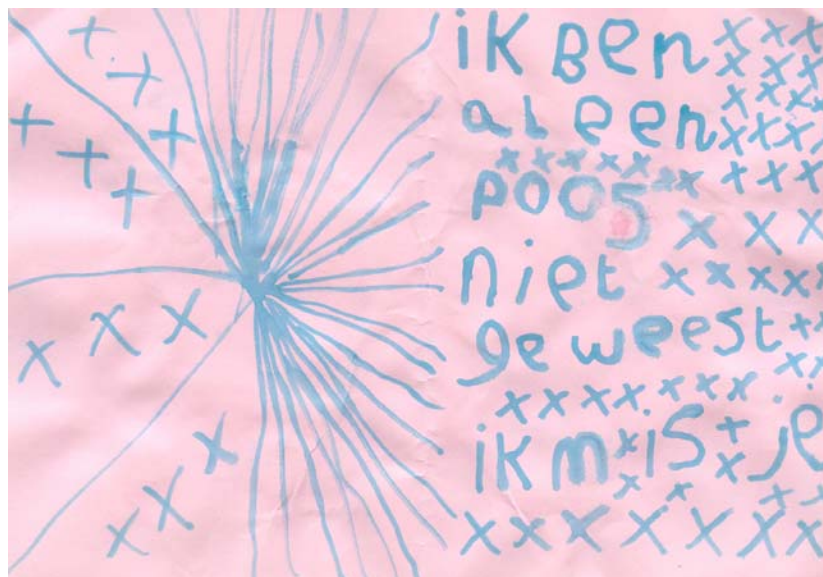 iK Ben
aL een
poos
niet
geweest
iK miS je